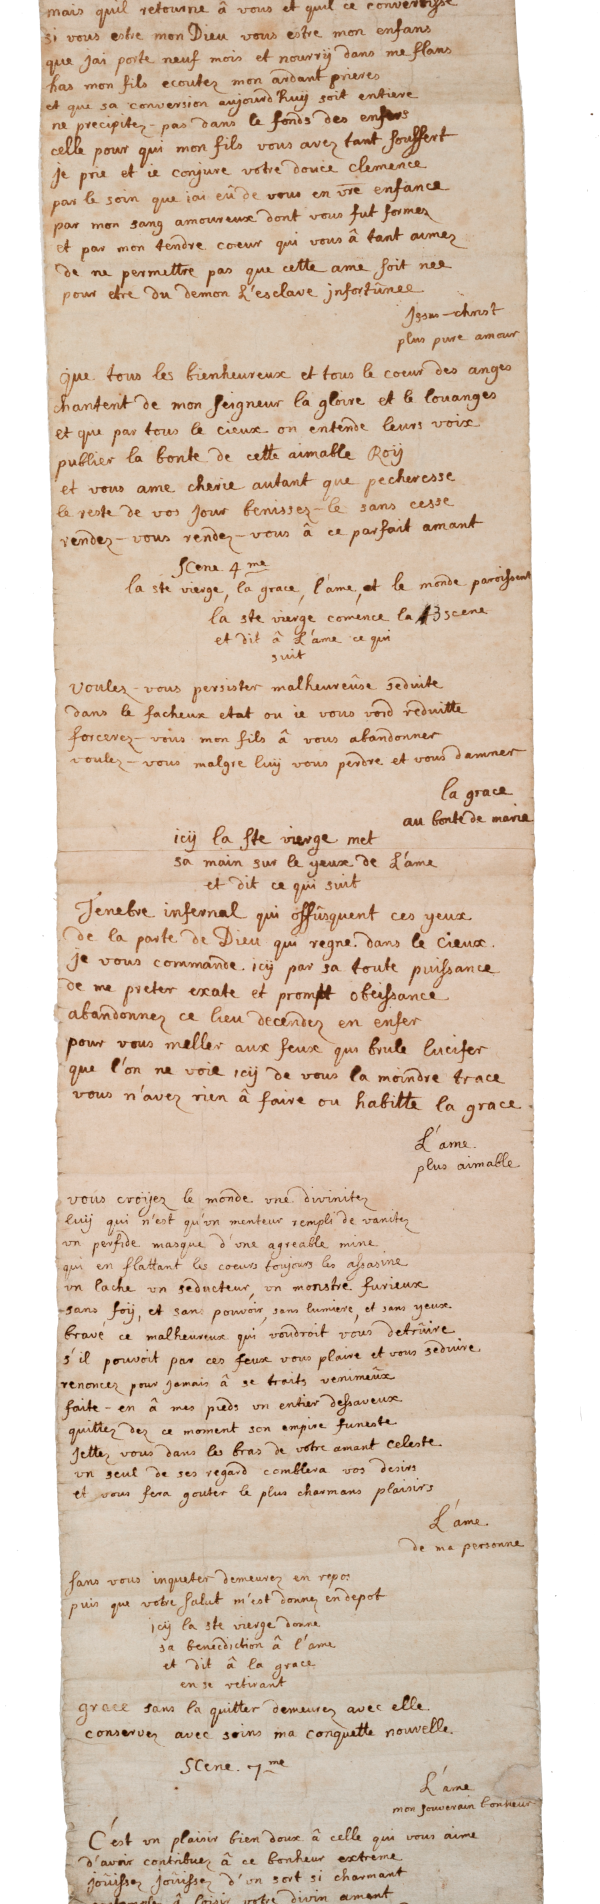 mais quil retourne â vous et quil ce convertisse
si vous estre mon Dieu vous estre mon enfans
que jai porte neuf mois et nourrij dans me flans
has mon fils ecoutez mon ardant prieres
et que sa conversion aujourd'huij soit entiere
ne precipitez-pas dans le fonds des enfers
celle pour qui mon fils vous avez tant souffert
je prie et ie conjure votre douce clemence
par le soin que iai eû de vous en vr̃e enfance
par mon sang amoureux dont vous fut formez
et par mon tendre coeur qui vous â tant aimez
de ne permettre pas que cette ame soit nee
pour etre du demon L'esclave jnfortûnee
Jesus-christ
plus pure amour
que tous les bienheureux et tous le coeur des anges
chantent de mon seigneur la gloire et le louanges
et que par tous le cieux on entende leurs voix
publier la bonte de cette aimable Roij
et vous ame cherie autant que pecheresse
le reste de vos jour benissez-le sans cesse
rendez-vous rendez-vous â ce parfait amant
Scene 4me
la ste vierge, la grace, l'ame, et le monde paroissent
la ste vierge comence la 3 scene
et dit â L'ame ce qui
suit
voulez-vous persister malheureûse seduite
dans le facheux etat ou ie vous void reduitte
forcerez-vous mon fils â vous abandonner
voulez-vous malgre luij vous perdre et vous damner
la grace
au bonte de marie
icij la ste vierge met
sa main sur le yeux de L'ame
et dit ce qui suit
Tenebre infernal qui offûsquent ces yeux
de la parte de Dieu qui regne dans le cieux
je vous commande icij par sa toute puissance
de me preter exate et prompt obeissance
abandonnez ce lieu decendez en enfer
pour vous meller aux feux qui brule lucifer
que l'on ne voie icij de vous la moindre trace
vous n'avez rien â faire ou habitte la grace
L'ame
plus aimable
vous croijez le monde vne divinitez
luij qui n'est qu'vn menteur rempli de vanitez
vn perfide masque d'vne agreable mine
qui en flattant les coeurs toujours les assasine
vn lache vn seducteur, vn monstre furieux
sans foij, et sans pouvoir, sans lumiere, et sans yeux
bravé ce malheureux qui voudroit vous detrûire
s'il pouvoit par ces feux vous plaire et vous seduire
renoncez pour jamais â se traits venimeûx
faite-en â mes pieds vn entier dessaveux
quittez dez ce moment son empire funeste
jettez vous dans les bras de votre amant celeste
vn seul de ses regard comblera vos desirs
et vous fera gouter le plus charmans plaisirs
L'ame
de ma personne
sans vous inqueter demeurez en repoz
puis que votre salut m'est donnez en depot
icij la ste vierge donne
sa benecdiction â l'ame
et dit â la grace
en se retirant
grace sans la quitter demeurez avec elle
conservez avec soins ma conquette nouvelle
Scene 7me
L'ame
mon souverain bonheur
C'est vn plaisir bien doux â celle qui vous aime
d'avoir contribuez â ce bonheur extreme
joüissez joüissez d'vn sort si charmant
â loisir votre divin amant